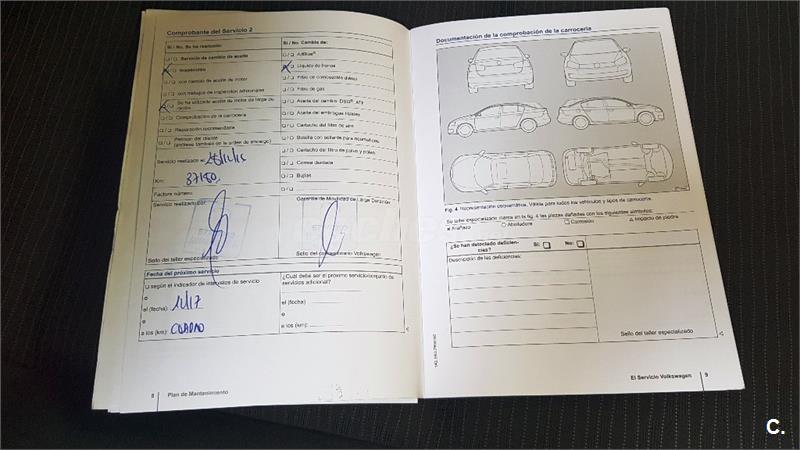 Comprobante del Servicio 2
Sí / No. Se ha realizado:
Servicio de cambio de aceite
Inspección
con cambio de aceite de motor
con trabajos de inspección adicionales
Se ha utilizado aceite de motor de larga duración
Comprobación de la carrocería
Reparación recomendada
Petición del cliente
(anótese también en la orden de encargo)
Servicio realizado el
Km:
37180
Factura número:
Servicio realizado por:
Sello del taller especializado
Sí / No. Cambio de:
AdBlue®
Líquido de frenos
Filtro de combustible diésel
Filtro de gas
Aceite del cambio DSG®, ATF
Aceite del embrague Haldex
Cartucho del filtro de aire
Botella con sellante para neumáticos
Cartucho del filtro de polvo y polen
Correa dentada
Bujías
Garantía de Movilidad de Larga Duración
Sello del concesionario Volkswagen
Fecha del próximo servicio
según el indicador de intervalos de servicio
o
el (fecha):
11/17
o
a los (km):
¿Cuál debe ser el próximo servicio/conjunto de servicios adicional?
el (fecha)
o
a los (km):
8 Plan de Mantenimiento
Documentación de la comprobación de la carrocería
Fig. 4 Representación esquemática. Válida para todos los vehículos y tipos de carrocería.
Su taller especializado marca en la fig. 4 las piezas dañadas con los siguientes símbolos:
Arañazo
Abolladura
Corrosión
Impacto de piedra
¿Se han detectado deficiencias?
Sí:
No:
Descripción de las deficiencias:
Sello del taller especializado
El Servicio Volkswagen 9
C.